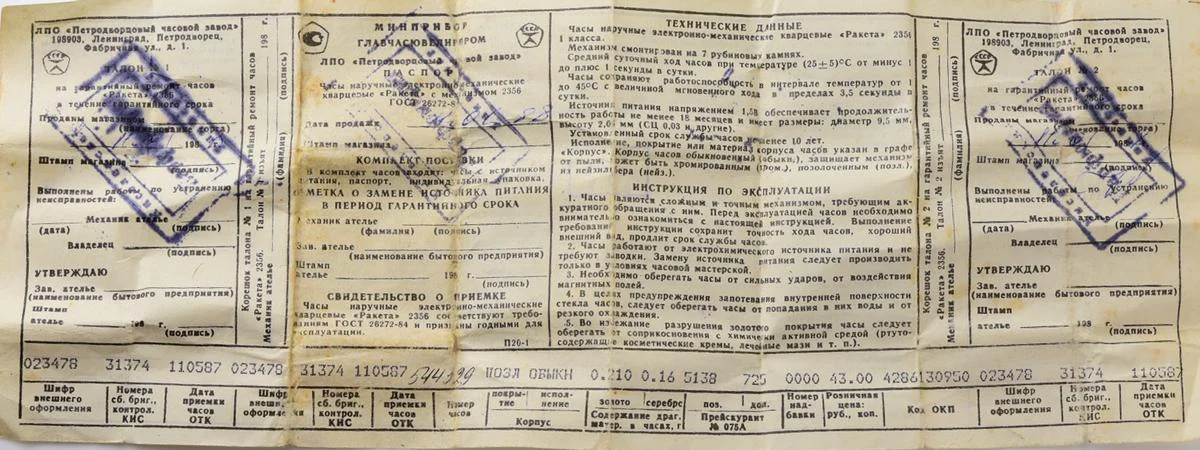 ЛПО «Петродворцовый часовой завод»
198903, Ленинград, Петродворец,
Фабричная ул., д. 1.
ТАЛОН
на гарантийный ремонт часов
«Ракета» 2356
в течение гарантийного срока
Проданы магазином
(наименование торга)
198
Штамп магазина
(подпись)
Выполнены работы по устранению
неисправностей:
Механик ателье
(дата) (подпись)
Владелец
(подпись)
УТВЕРЖДАЮ
Зав. ателье
(наименование бытового предприятия)
Штамп
ателье 198 г.
(подпись)
Корешок талона № 1 на гарантийный ремонт часов
«Ракета» 2356. Талон № 1 изъят 198 г.
Механик ателье (фамилия) (подпись)
МИНПРИБОР
ГЛАВЧАСЮВЕЛИРПРОМ
ЛПО «Петродворцовый часовой завод»
ПАСПОРТ
Часы наручные электронно-механические
кварцевые «Ракета» с механизмом 2356
ГОСТ 26272-84
Дата продажи
Штамп магазина
КОМПЛЕКТ ПОСТАВКИ
В комплект часов входит: часы с источником
питания, паспорт, индивидуальная упаковка.
ОТМЕТКА О ЗАМЕНЕ ИСТОЧНИКА ПИТАНИЯ
В ПЕРИОД ГАРАНТИЙНОГО СРОКА
Механик ателье
(фамилия) (подпись)
Зав. ателье
(наименование бытового предприятия)
Штамп
ателье 198 г.
(подпись)
СВИДЕТЕЛЬСТВО О ПРИЕМКЕ
Часы наручные электронно-механические
кварцевые «Ракета» 2356 соответствуют требо-
ваниям ГОСТ 26272-84 и признаны годными для
эксплуатации.
П20-1
ТЕХНИЧЕСКИЕ ДАННЫЕ
Часы наручные электронно-механические кварцевые «Ракета» 2356
1 класса.
Механизм смонтирован на 7 рубиновых камнях.
Средний суточный ход часов при температуре (25±5)°С от минус 1
до плюс 1 секунды в сутки.
Часы сохраняют работоспособность в интервале температур от 1
до 45°С с величиной мгновенного хода в пределах 3,5 секунды в
сутки.
Источник питания напряжением 1,58 обеспечивает продолжитель-
ность работы не менее 18 месяцев и имеет размеры: диаметр 9,5 мм,
высоту 2,07 мм (СЦ 0,03 и другие).
Установленный срок службы часов не менее 10 лет.
Исполнение, покрытие или материал корпуса часов указан в графе
«Корпус». Корпус часов обыкновенный (обыкн.), защищает механизм
от пыли, может быть хромированным (хром.), позолоченным (позл.)
из нейзильбера (нейз.).
ИНСТРУКЦИЯ ПО ЭКСПЛУАТАЦИИ
1. Часы являются сложным и точным механизмом, требующим ак-
куратного обращения с ним. Перед эксплуатацией часов необходимо
внимательно ознакомиться с настоящей инструкцией. Выполнение
требований инструкции сохранит точность хода часов, хороший
внешний вид, продлит срок службы часов.
2. Часы работают от электрохимического источника питания и не
требуют заводки. Замену источника питания следует производить
только в условиях часовой мастерской.
3. Необходимо оберегать часы от сильных ударов, от воздействия
магнитных полей.
4. В целях предупреждения запотевания внутренней поверхности
стекла часов, следует оберегать часы от попадания в них воды и от
резкого охлаждения.
5. Во избежание разрушения золотого покрытия часы следует
оберегать от соприкосновения с химически активной средой (ртуто-
содержащие косметические кремы, лечебные мази и т. п.).
Корешок талона № 2 на гарантийный ремонт часов
«Ракета» 2356. Талон № 2 изъят 198 г.
Механик ателье (фамилия) (подпись)
ЛПО «Петродворцовый часовой завод»
198903, Ленинград, Петродворец,
Фабричная ул., д. 1.
ТАЛОН № 2
на гарантийный ремонт часов
«Ракета» 2356
в течение гарантийного срока
Проданы магазином
(наименование торга)
198
Штамп магазина
(подпись)
Выполнены работы по устранению
неисправностей:
Механик ателье
(дата) (подпись)
Владелец
(подпись)
УТВЕРЖДАЮ
Зав. ателье
(наименование бытового предприятия)
Штамп
ателье 198 г.
(подпись)
023478 31374 110587 023478 31374 110587 544329 ПОЗЛ ОБЫКН 0.210 0.16 5138 725 0000 43.00 4286130950 023478 31374 110587
Шифр внешнего оформления
Номера сб. бриг., контрол. КИС
Дата приемки часов ОТК
Шифр внешнего оформления
Номера сб. бриг., контрол. КИС
Дата приемки часов ОТК
Номер часов
покрытие исполнение
Корпус
золото серебро
Содержание драг. матер. в часах, г
поз. доп.
Прейскурант № 075А
Номер надбавки
Розничная цена: руб., коп.
Код ОКП
Шифр внешнего оформления
Номера сб. бриг., контрол. КИС
Дата приемки часов ОТК